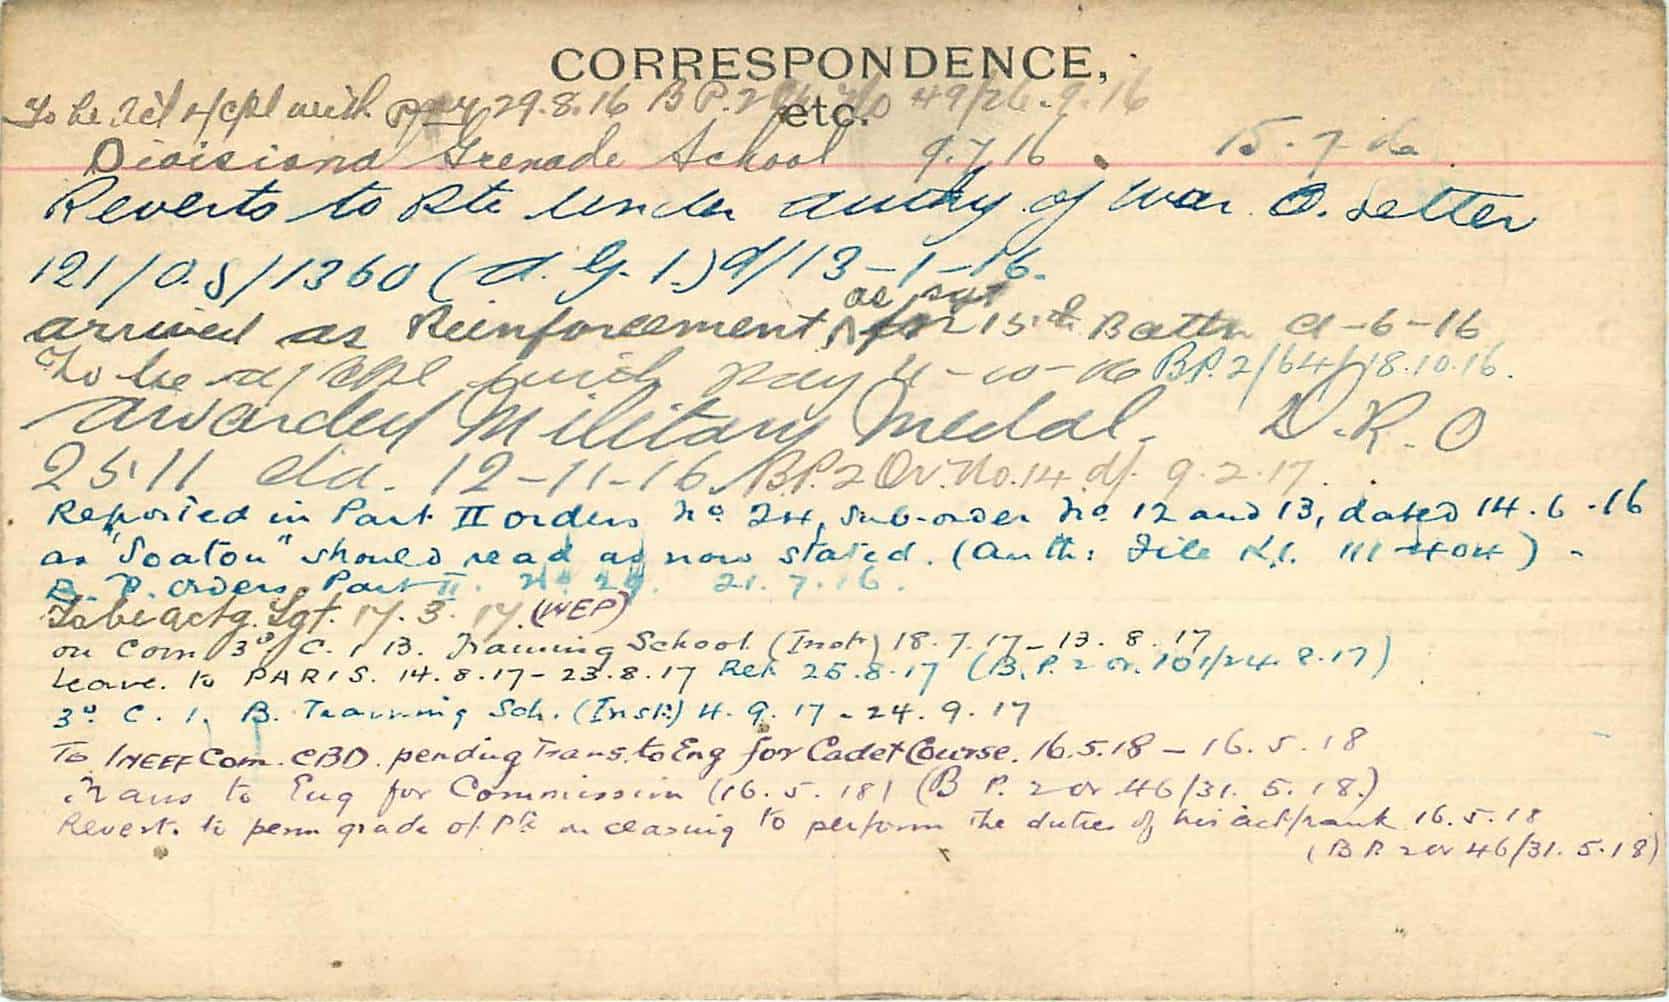 CORRESPONDENCE,
etc.
To be A/Cpl with pay 29.8.16 B P. 2 49/26.9.16
Divisional Grenade School 9.7.16 . 15.7.16.
Reverts to Pte under authy of War O. Letter
121/O.S/1360 (A. G. 1.) d/13-1-16.
as Sgt
arrived as Reinforcement for 15th Battn -6-16
To be a/cpl with pay 11-10-16 B.P. 2/64/18.10.16.
awarded Military Medal. D.R.O
2511 dd. 12-11-16. B.P. 2 Or. No. 14 d/. 9.2.17.
Reported in Part II Orders No 24, sub-order No 12 and 13, dated 14.6.16
as "Soaton" should read as now stated. (Auth: File K.1. 111-404) -
B. P. Orders, Part II. No 29. 21.7.16.
To be actg. Sgt. 17.3.17. (WEP)
on Com 3d C. I. B. Training School (Inst) 18.7.17-13.8.17
Leave. to PARIS. 14.8.17-23.8.17 Ret. 25.8.17 (B.P. 2 or. 101/24.8.17)
3d C. I. B. Training Sch. (Inst:) 4.9.17 - 24.9.17
To INEFF Com. CBD. pending Trans. to Eng for Cadet Course. 16.5.18 - 16.5.18
Trans to Eng for Commission (16.5.18) (B P. 2 or 46/31.5.18.)
Revert. to perm grade of Pte on ceasing to perform the duties of his act/rank 16.5.18
(B P. 2 or 46/31.5.18)